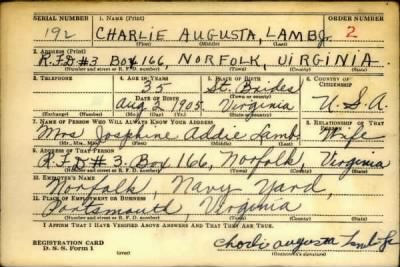 SERIAL NUMBER 1. NAME (Print) ORDER NUMBER
192 CHARLIE AUGUSTA, LAMB Jr. 2
(First) (Middle) (Last)
2. ADDRESS (Print)
R.F.D #3 Box 166, NORFOLK, VIRGINIA.
(Number and street or R. F. D. number) (Town) (County) (State)
3. TELEPHONE 4. AGE IN YEARS 5. PLACE OF BIRTH 6. COUNTRY OF CITIZENSHIP
35 St. Brides
DATE OF BIRTH
Aug 2 1905 Virginia U.S.A.
(Exchange) (Number) (Mo.) (Day) (Yr.) (State or country)
7. NAME OF PERSON WHO WILL ALWAYS KNOW YOUR ADDRESS 8. RELATIONSHIP OF THAT PERSON
Mrs Josephine Addie Lamb. Wife
(Mr., Mrs., Miss) (First) (Middle) (Last)
9. ADDRESS OF THAT PERSON
R.F.D #3. Box 166, Norfolk, Virginia
(Number and street or R. F. D. number) (Town) (County) (State)
10. EMPLOYER'S NAME
Norfolk Navy Yard,
11. PLACE OF EMPLOYMENT OR BUSINESS
Portsmouth, Virginia
(Number and street or R. F. D. number) (Town) (County) (State)
I AFFIRM THAT I HAVE VERIFIED ABOVE ANSWERS AND THAT THEY ARE TRUE.
REGISTRATION CARD
D. S. S. Form 1 Charlie augusta Lamb Jr
(Registrant's signature)